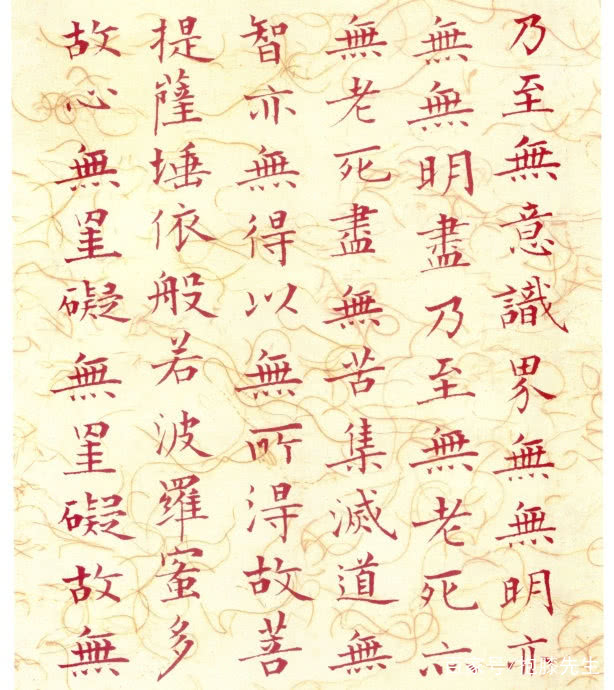 乃至無意識界無無明亦
無無明盡乃至無老死亦
無老死盡無苦集滅道無
智亦無得以無所得故菩
提薩埵依般若波羅蜜多
故心無罣礙無罣礙故無
百家号/先生